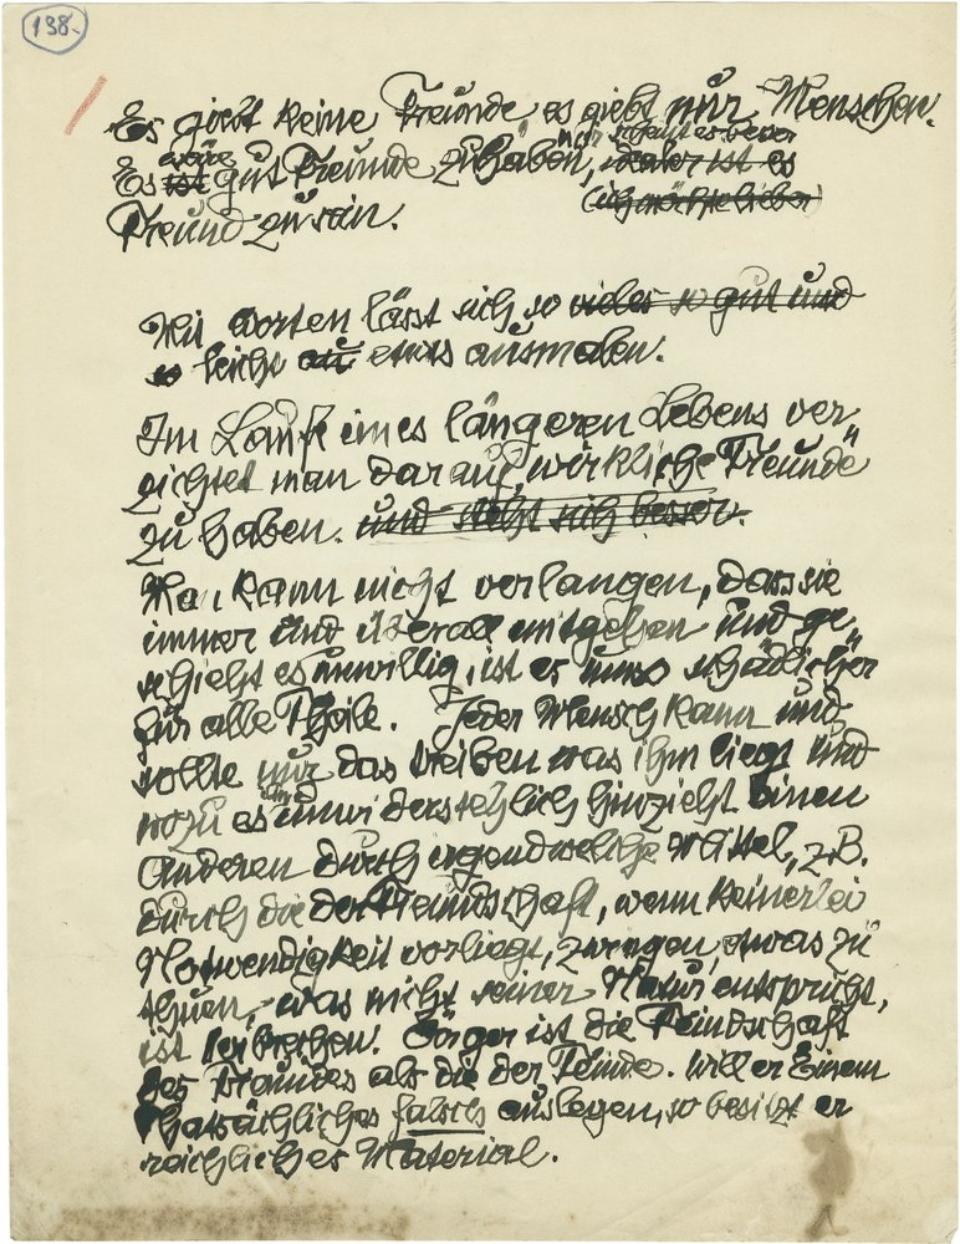 138.
Es giebt keine Freunde es giebt nur Menschen.
wäre mir scheint es besser
Es ist gut Freunde zu haben, daher ist es
(ich möchte lieber)
Freund zu sein.
Mit Worten lässt sich so vieles so gut und
so leicht etwas ausmalen.
Im Laufe eines längeren Lebens ver„
zichtet man darauf, wirkliche Freunde
zu haben. und steht sich besser.
Man kann nicht verlangen, dass sie
immer und überall mitgehen und ge„
schieht es unwillig, ist es umso schädlicher
für alle Theile. Jeder Mensch kann und
sollte nur das treiben was ihm liegt und
wozu es ihn unwiderstehlich hinzieht Einen
Anderen durch irgendwelche Mittel, z.B.
durch die der Freundschaft, wenn keinerlei
Notwendigkeit vorliegt, zwingen, etwas zu
thuen, was nicht seiner Natur entspricht,
ist Verbrechen. Ärger ist die Feindschaft
des Freundes als die der Feinde. Will er Einem
Thatsächliches falsch auslegen, so besitzt er
reichliches Material.